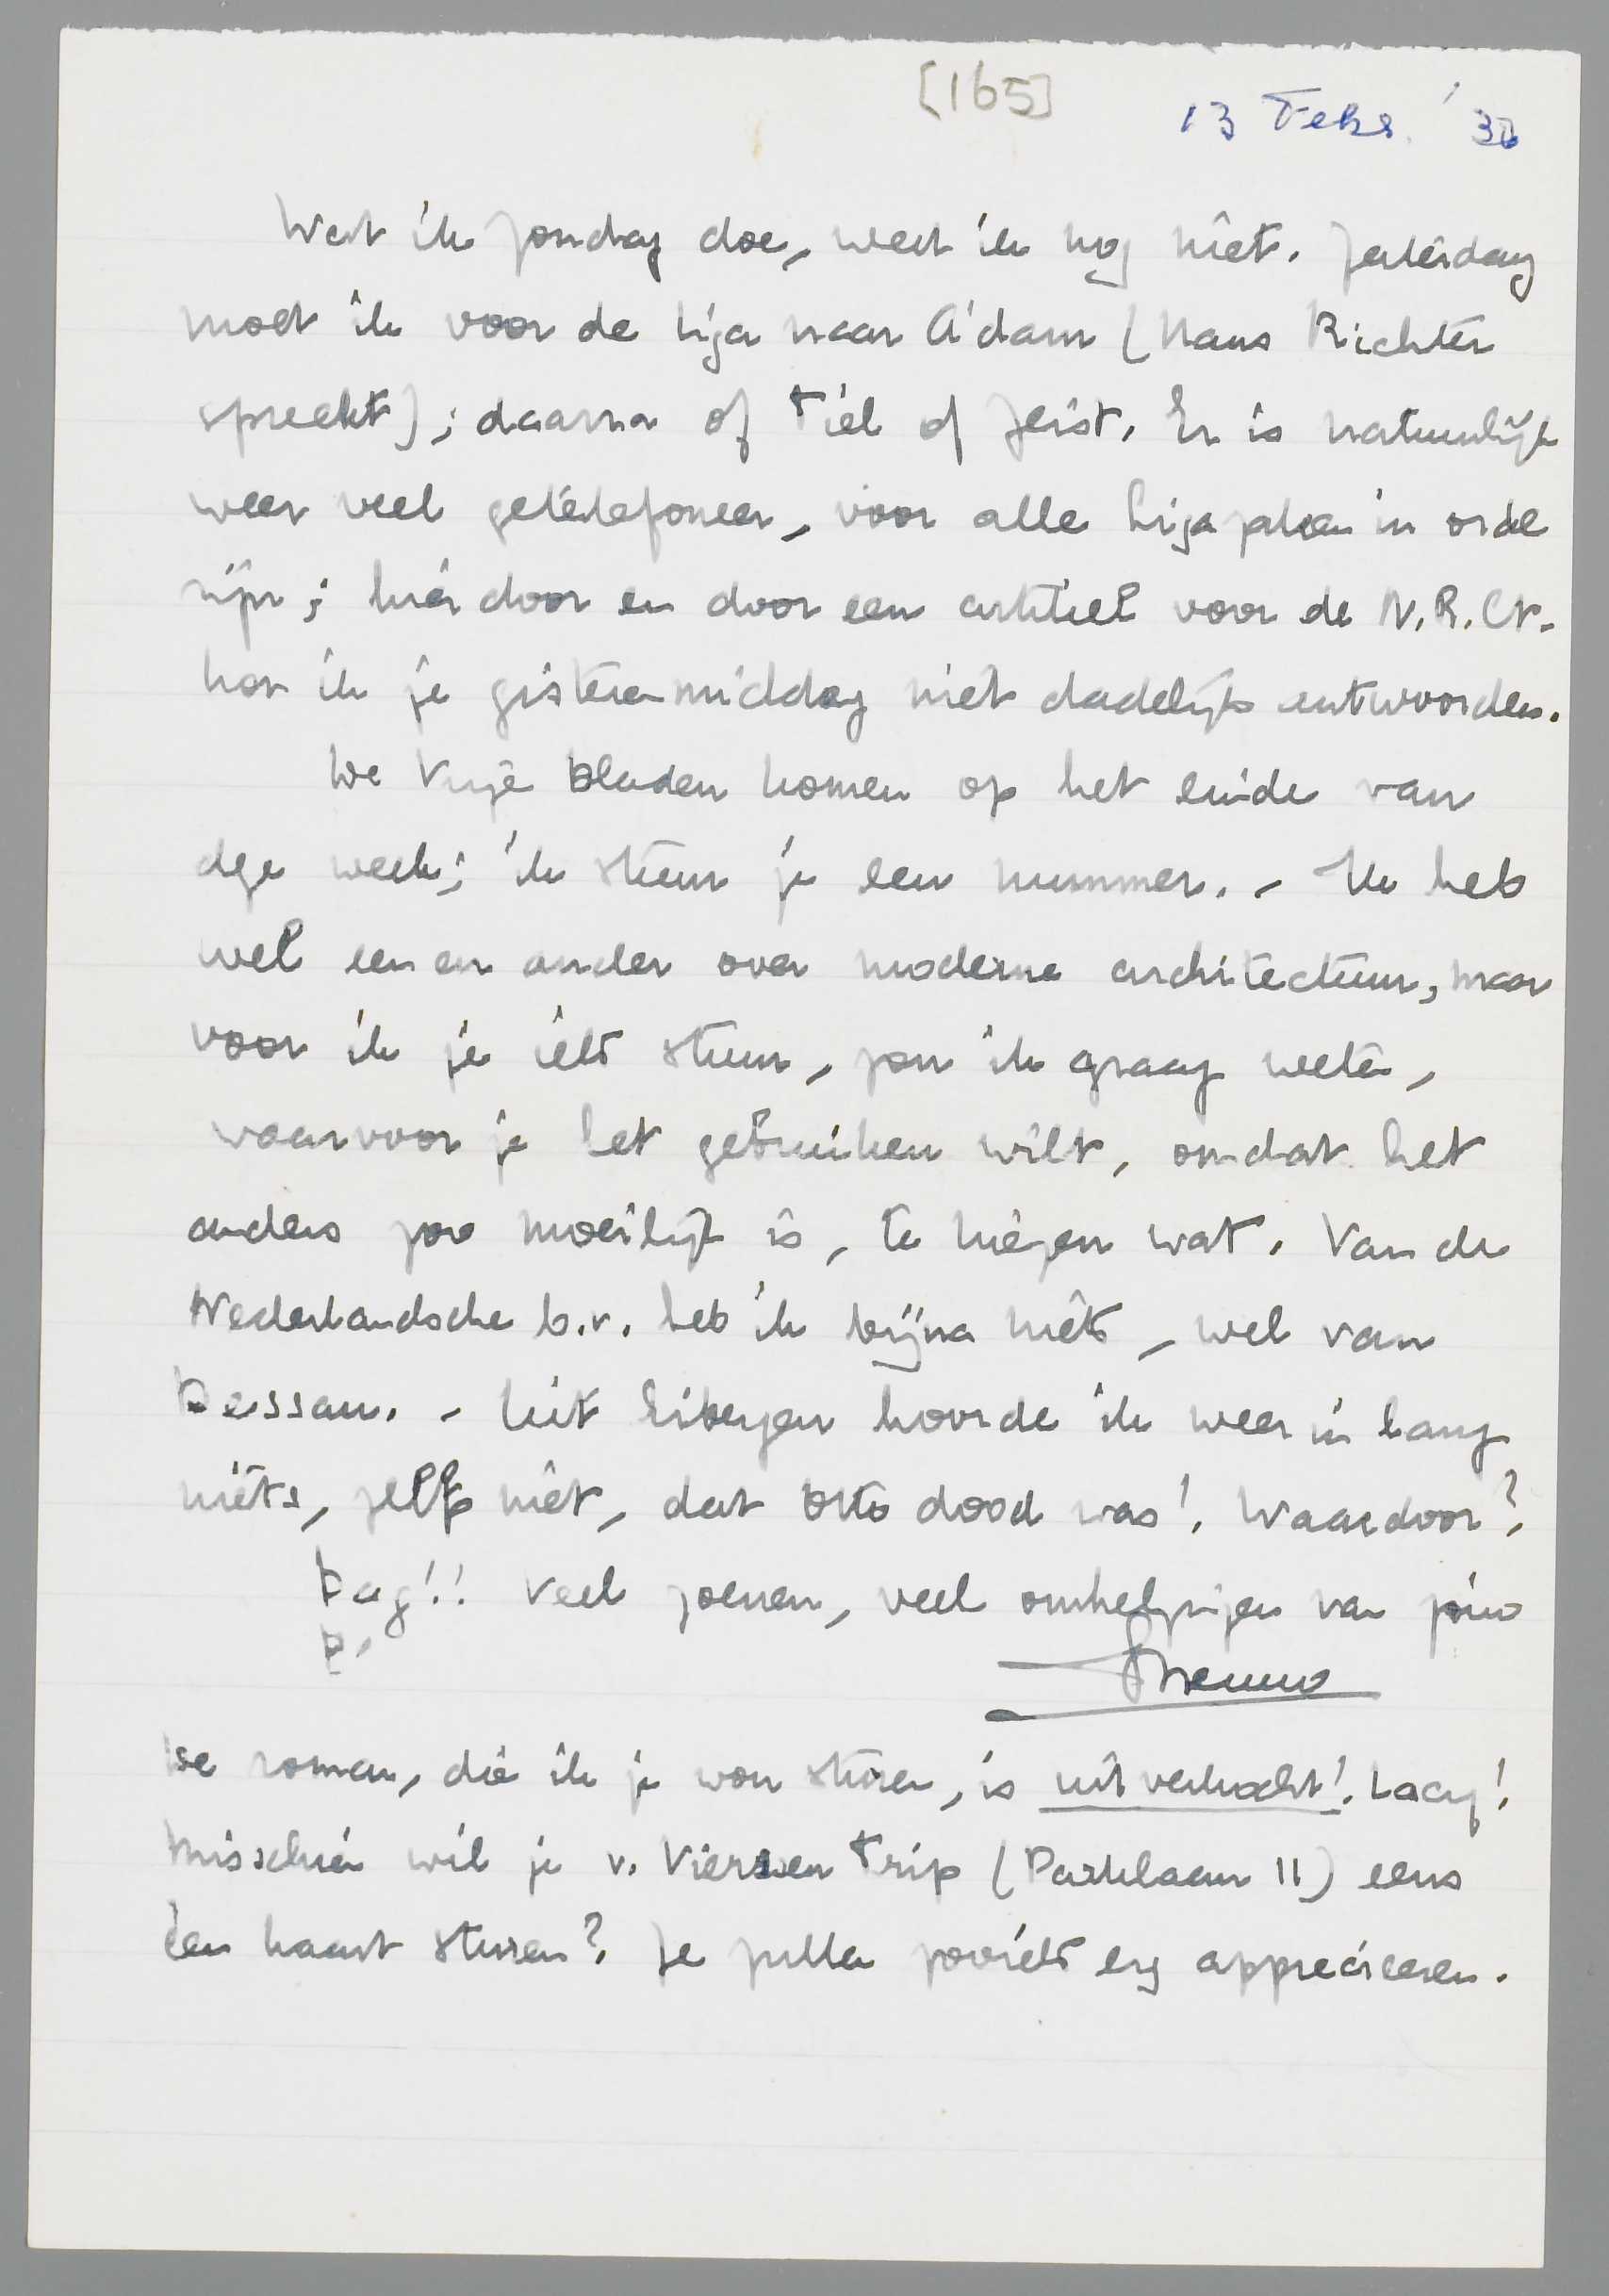 [165]
13 Febr. '30
Wat ik zondag doe, weet ik nog niet. Zaterdag
moet ik voor de Liga naar A'dam (Hans Richter
spreekt); daarna of Tiel of Zeist. Er is natuurlijk
weer veel getelefoneer, voor alle Ligazalen in orde
zijn; hierdoor en door een artikel voor de N.R.Ct.
kon ik je gisterenmiddag niet dadelijk antwoorden.
De Vrije Bladen komen op het einde van
deze week; ik stuur je een nummer. - Ik heb
wel een en ander over moderne architectuur, maar
voor ik je iets stuur, zou ik graag weten,
waarvoor je het gebruiken wilt, omdat het
anders zoo moeilijk is, te kiezen wat. Van de
Nederlandsche b.v. heb ik bijna niets, wel van
Dessau. - Uit Eibergen hoorde ik weer in lang
niets, zelfs niet, dat Otto dood was! Waardoor?
Dag!! Veel zoenen, veel omhelzingen van jouw
Menno
De roman, die ik je wou sturen, is uitverkocht! Laag!
Misschien wil je v. Vierssen Trip (Parklaan 11) eens
een kaart sturen? Ze zullen zooiets erg apprecieeren.